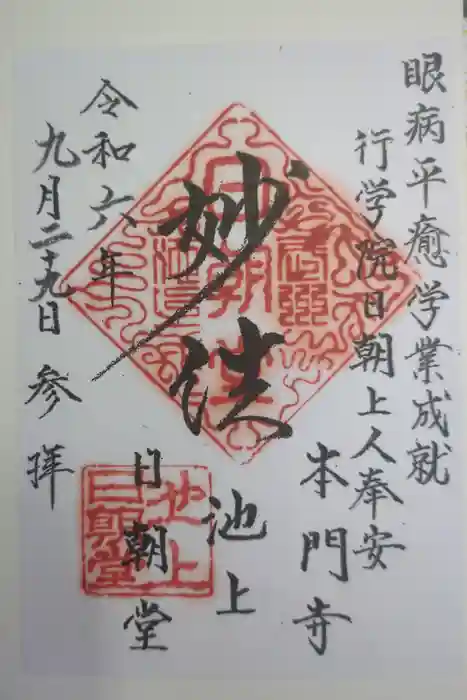 眼病平癒学業成就
行学院日朝上人奉安
本門寺
妙法
池上
日朝堂
令和六年
九月二十九日
参拝
池上
日朝堂